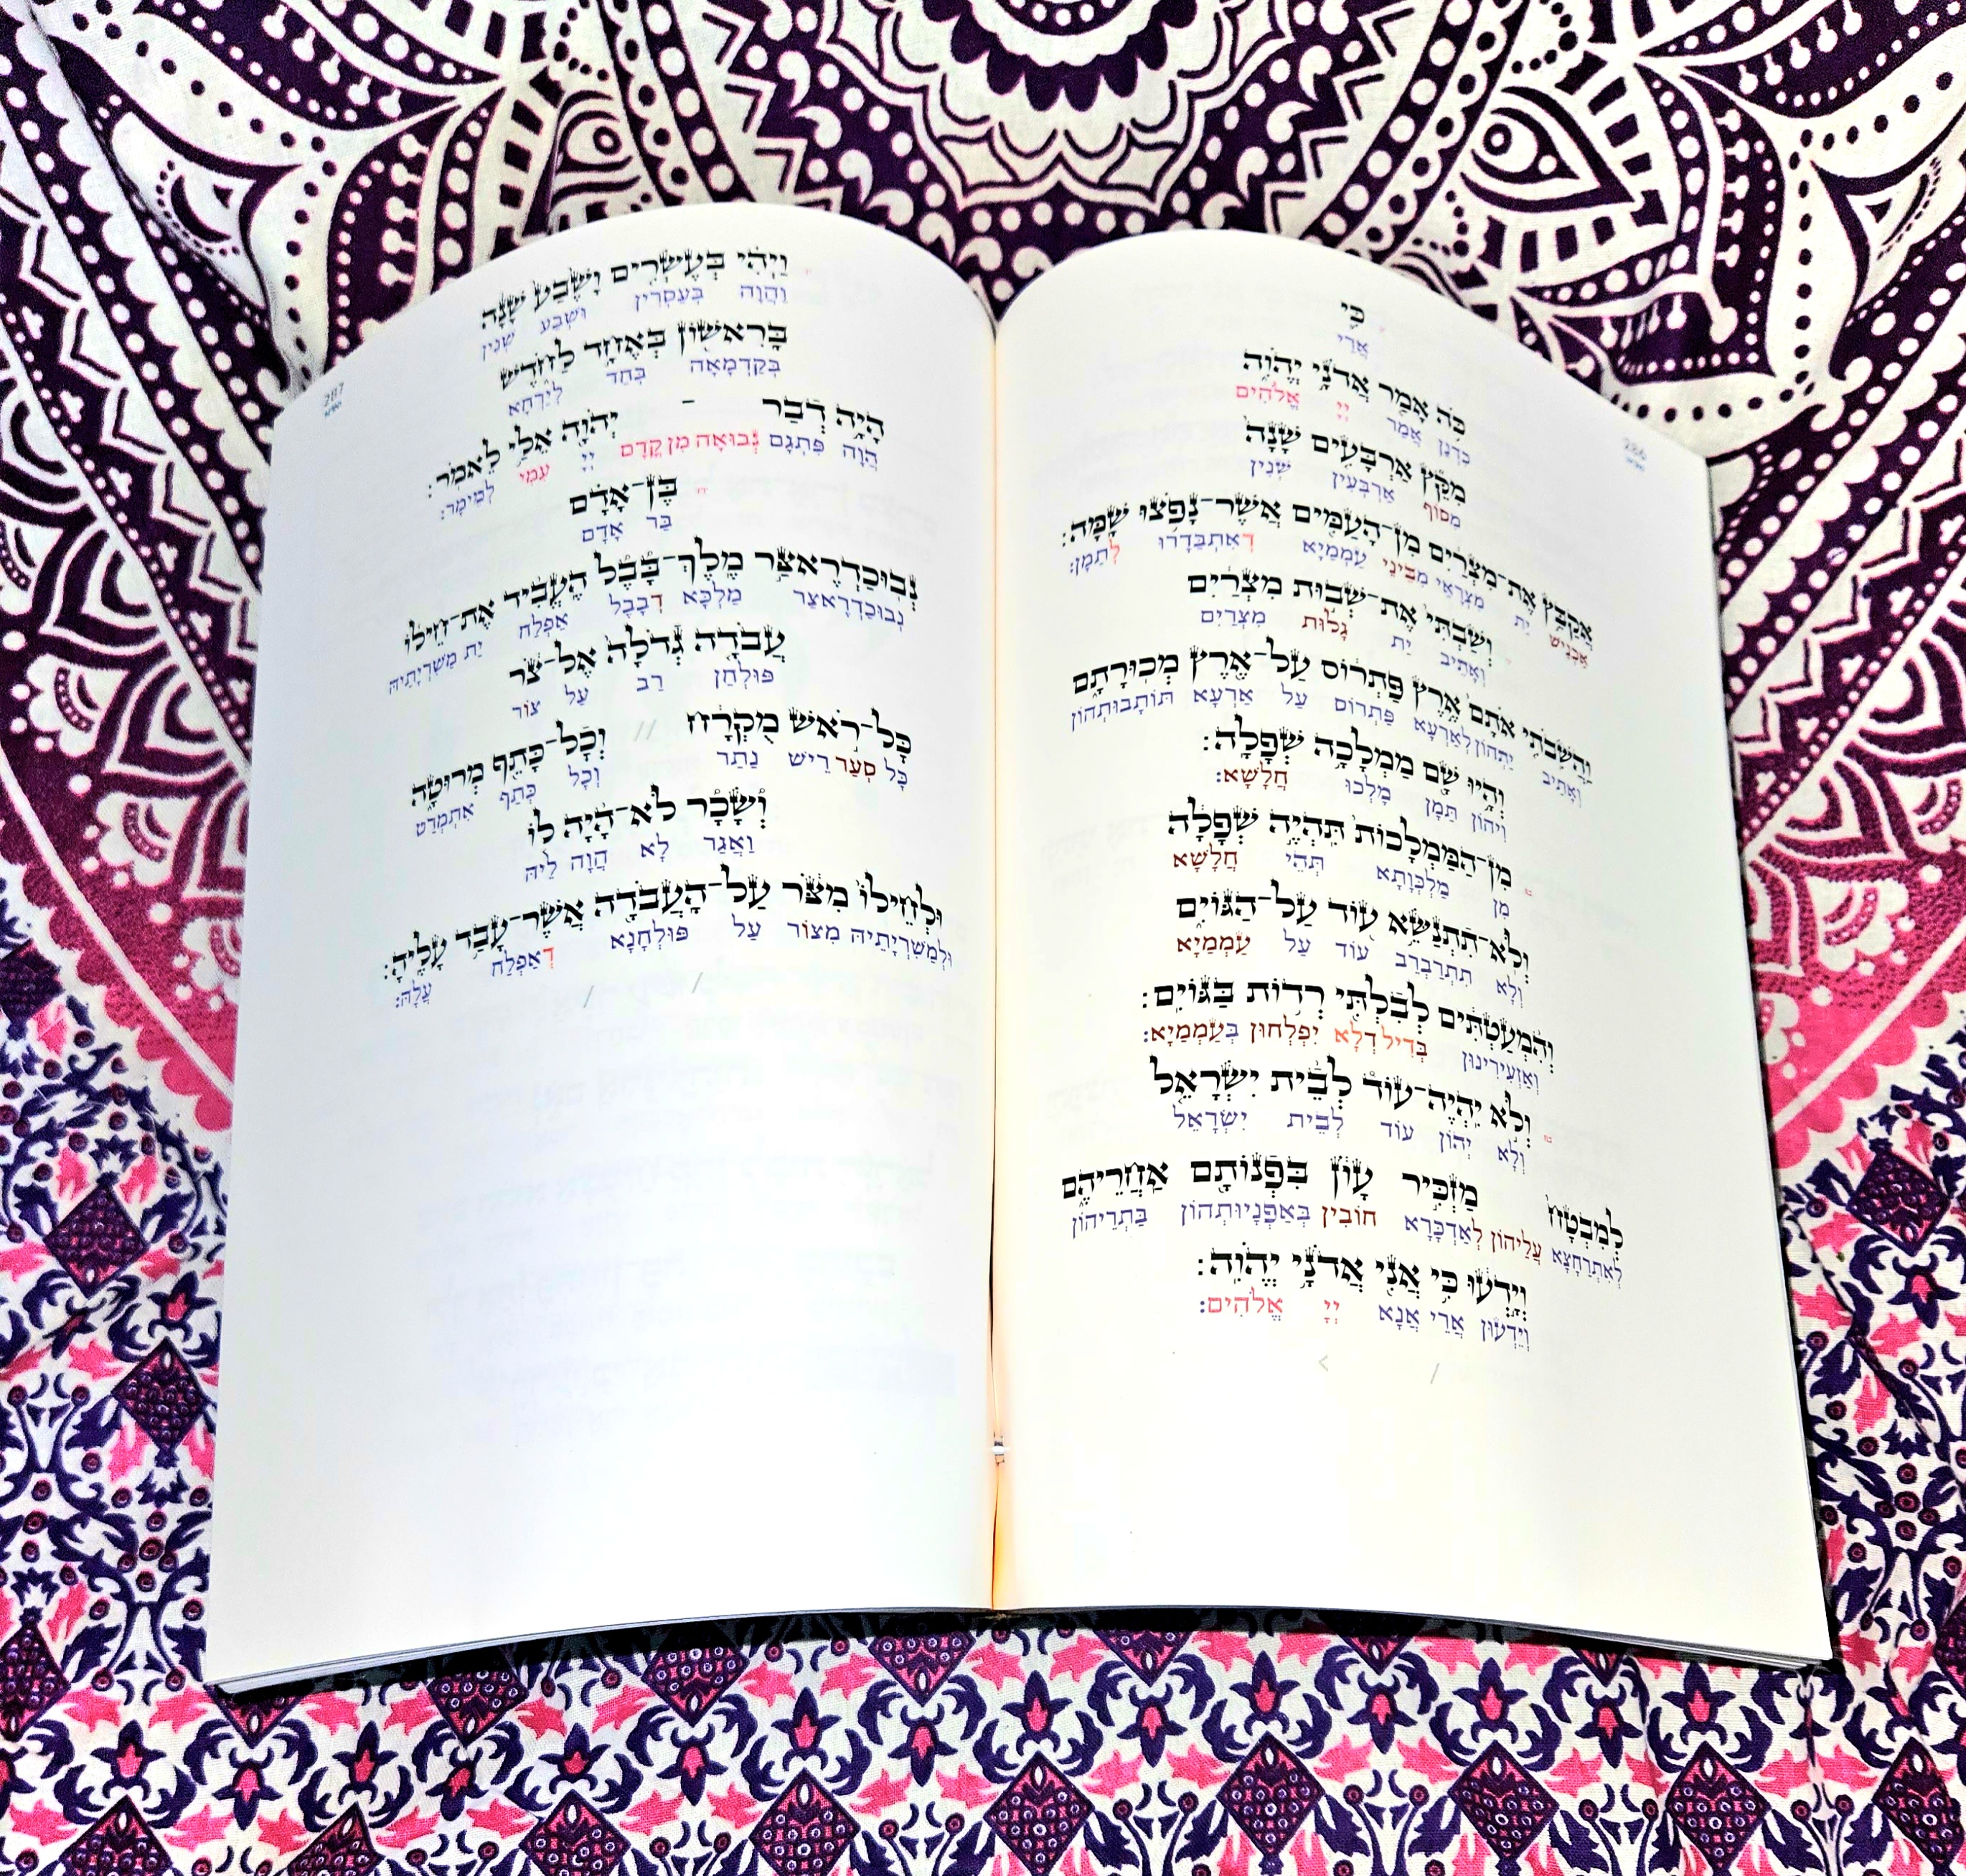 286
וארא
כִּ֗י
אֲרֵי
כֹּ֤ה אָמַר֙ אֲדֹנָ֣י יֱהֹוִ֔ה
כִּדְנַן אֲמַר יְיָ אֱלֹהִים
מִקֵּ֞ץ אַרְבָּעִ֤ים שָׁנָה֙
מִסּוֹף אַרְבְּעִין שְׁנִין
אֲקַבֵּ֣ץ אֶת־מִצְרַ֔יִם מִן־הָעַמִּ֖ים אֲשֶׁר־נָפֹ֥צוּ שָֽׁמָּה׃
אֲכַנֵּישׁ יָת מִצְרָאֵי מִבֵּינֵי עַמְמַיָּא דְאִתְבַּדָּרוּ לְתַמָּן׃
וְשַׁבְתִּי֙ אֶת־שְׁב֣וּת מִצְרַ֔יִם
וְאָתִיב יָת גָּלוּת מִצְרַיִם
וַהֲשִׁבֹתִ֤י אֹתָם֙ אֶ֣רֶץ פַּתְר֔וֹס עַל־אֶ֖רֶץ מְכוּרָתָ֑ם
וְאָתִיב יָתְהוֹן לְאַרְעָא פַּתְרוֹס עַל אַרְעָא תּוֹתָבוּתְהוֹן
וְהָ֥יוּ שָׁ֖ם מַמְלָכָ֥ה שְׁפָלָֽה׃
וִיהוֹן תַּמָּן מַלְכוּ חֲלָשָׁא׃
מִן־הַמַּמְלָכוֹת֙ תִּהְיֶ֣ה שְׁפָלָ֔ה
מִן מַלְכְּוָתָא תְּהֵי חֲלָשָׁא
וְלֹא־תִתְנַשֵּׂ֥א ע֖וֹד עַל־הַגּוֹיִ֑ם
וְלָא תִתְרַבְרַב עוֹד עַל עַמְמַיָּא
וְהִ֨מְעַטְתִּ֔ים לְבִלְתִּ֖י רְד֥וֹת בַּגּוֹיִֽם׃
וְאַזְעֵירִינּוּן בְּדִיל דְּלָא יִפְלְחוּן בְּעַמְמַיָּא׃
וְלֹ֣א יִֽהְיֶה־עוֹד֩ לְבֵ֨ית יִשְׂרָאֵ֤ל
וְלָא יְהוֹן עוֹד לְבֵית יִשְׂרָאֵל
לְמִבְטָח֙ מַזְכִּ֣יר עָוֺ֔ן בִּפְנוֹתָ֖ם אַחֲרֵיהֶ֑ם
לְאִתְרַחָצָא עֲלֵיהוֹן לְאַדְכָּרָא חוֹבִין בְּאִתְפְּנָיוּתְהוֹן בַּתְרֵיהוֹן
וְיָ֣דְע֔וּ כִּ֥י אֲנִ֖י אֲדֹנָ֥י יֱהֹוִֽה׃
וְיִדְּעוּן אֲרֵי אֲנָא יְיָ אֱלֹהִים׃
287
וארא
וַיְהִ֗י בְּעֶשְׂרִ֤ים וָשֶׁ֙בַע֙ שָׁנָ֔ה
וַהֲוָה בְּעַסְרִין וּשְׁבַע שְׁנִין
בָּֽרִאשׁ֖וֹן בְּאֶחָ֣ד לַחֹ֑דֶשׁ
בְּקַדְמָאָה בְּחַד לְיַרְחָא
הָיָ֥ה דְבַר־ יְהֹוָ֖ה אֵלַ֥י לֵאמֹֽר׃
הֲוָה פִּתְגָם נְבוּאָה מִן קֳדָם יְיָ עִמִּי לְמֵימָר׃
בֶּן־אָדָ֗ם
בַּר אָדָם
נְבוּכַדְרֶאצַּ֣ר מֶֽלֶךְ־בָּ֠בֶל הֶעֱבִ֨יד אֶת־חֵיל֜וֹ
נְבוּכַדְרֶאצַּר מַלְכָּא דְבָבֶל אַפְלַח יָת מַשִׁרְיָתֵיהּ
עֲבֹדָ֤ה גְדֹלָה֙ אֶל־צֹ֔ר
פּוּלְחַן רַב עַל צוֹר
כׇּל־רֹ֣אשׁ מֻקְרָ֔ח // וְכׇל־כָּתֵ֖ף מְרוּטָ֑ה
כָּל סְעַר רֵישׁ נְתַר וְכָל כְּתַף אִתְמְרַט
וְ֠שָׂכָ֠ר לֹא־הָ֨יָה ל֤וֹ
וַאֲגַר לָא הֲוָה לֵיהּ
וּלְחֵילוֹ֙ מִצֹּ֔ר עַל־הָעֲבֹדָ֖ה אֲשֶׁר־עָבַ֥ד עָלֶֽיהָ׃
וּלְמַשִׁרְיָתֵיהּ מִצּוֹר עַל פּוּלְחָנָא דְאַפְלַח עֲלַהּ׃